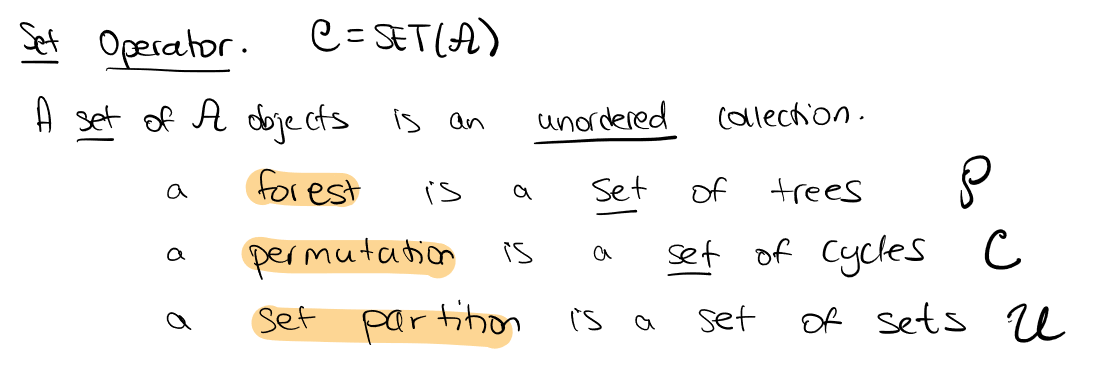 Set Operator. C = SET(A)
A set of A objects is an unordered collection.
a forest is a set of trees P
a permutation is a set of cycles C
a set partition is a set of sets U